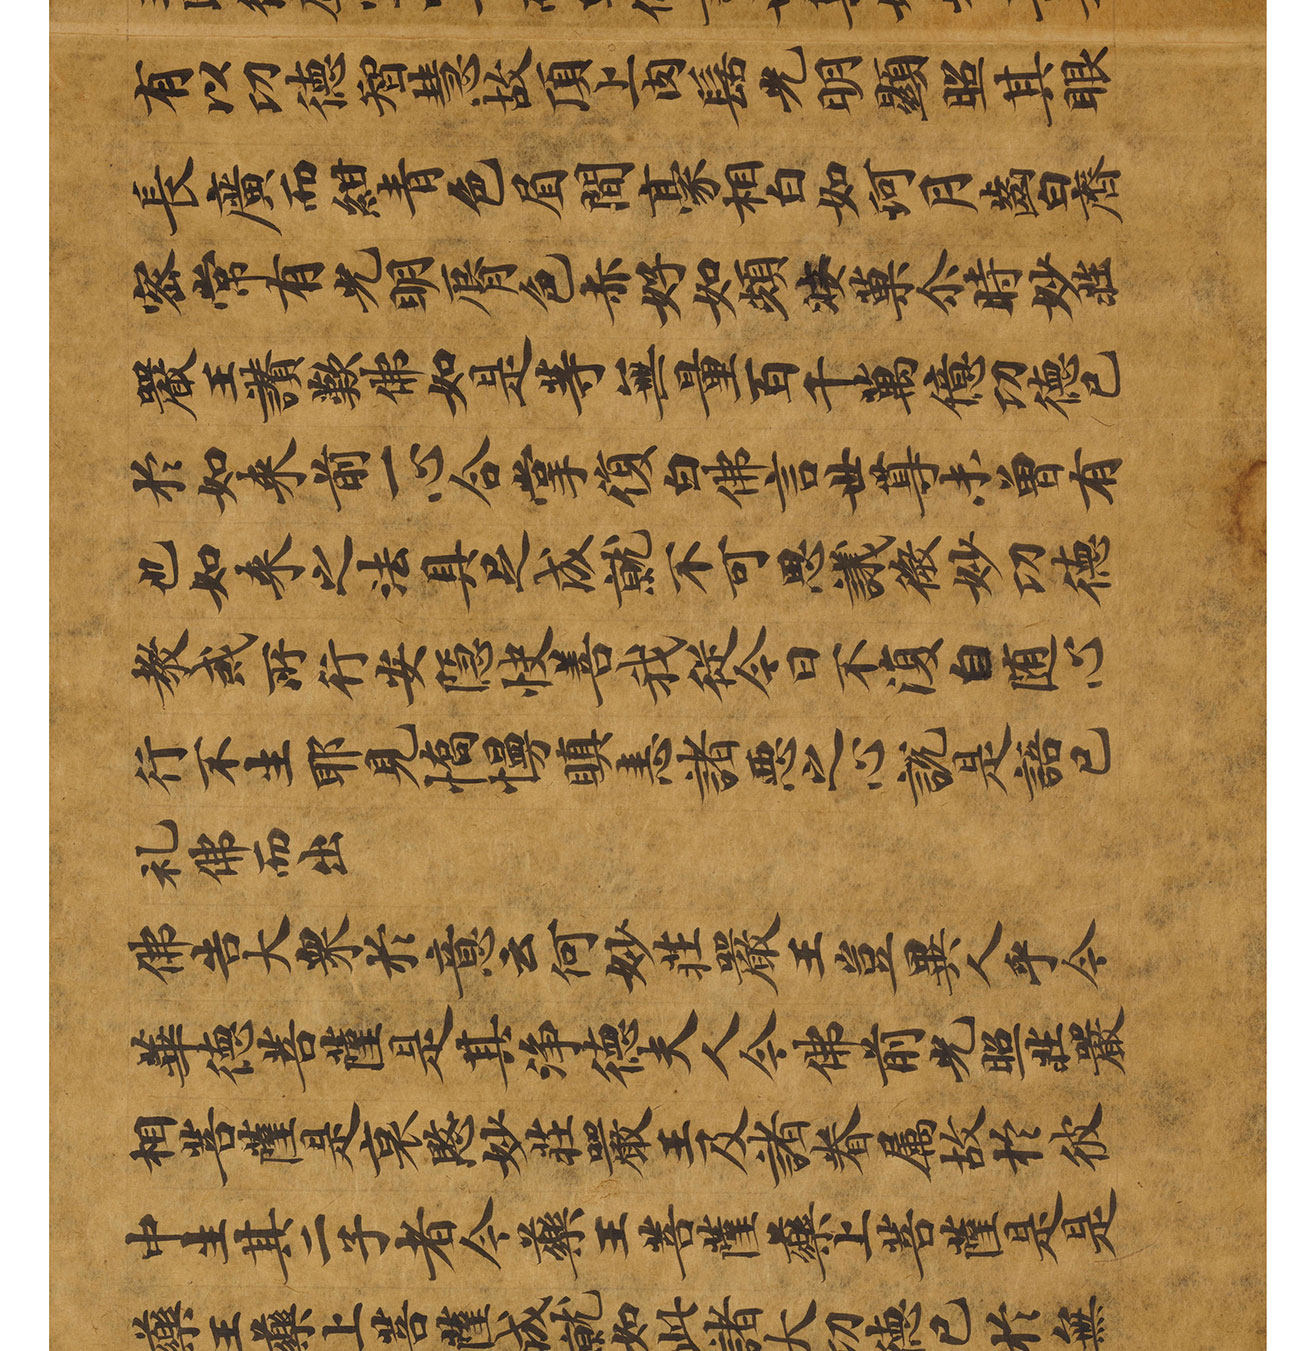 有以功德智慧故頂上肉髻光明顯照其眼
長廣而紺青色眉間豪相白如珂月齒白齊
密常有光明脣色赤好如頻婆菓尒時妙莊
嚴王讃歎佛如是等無量百千萬億功德已
於如来前一心合掌復白佛言世尊未曽有
也如来之法具足成就不可思議微妙功德
教戒所行安隱快善我從今日不復自随心
行不生耶見憍慢瞋恚諸惡之心說是語已
礼佛而出
佛告大衆於意云何妙莊嚴王豈異人乎今
華德菩薩是其淨德夫人今佛前光照莊嚴
相菩薩是哀愍妙莊嚴王及諸眷屬故於彼
中生其二子者今藥王菩薩藥上菩薩是是
藥王藥上菩薩成就如此諸大功德已於無